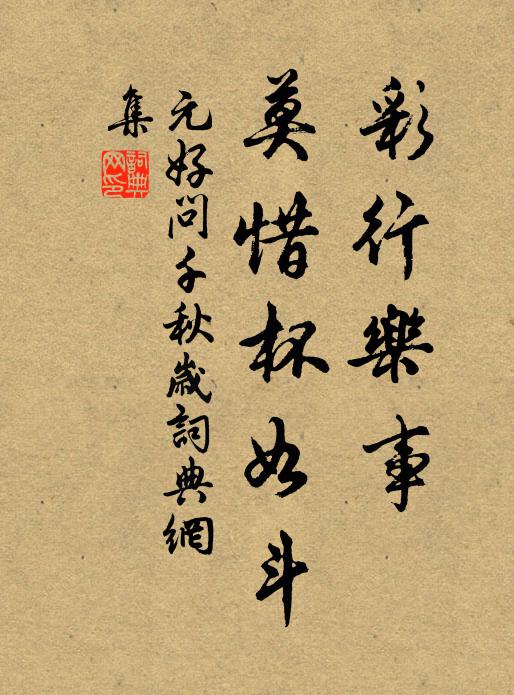 彩行樂事
莫惜杯如斗
元好問千秋歲詞典網
集
詞典
網印